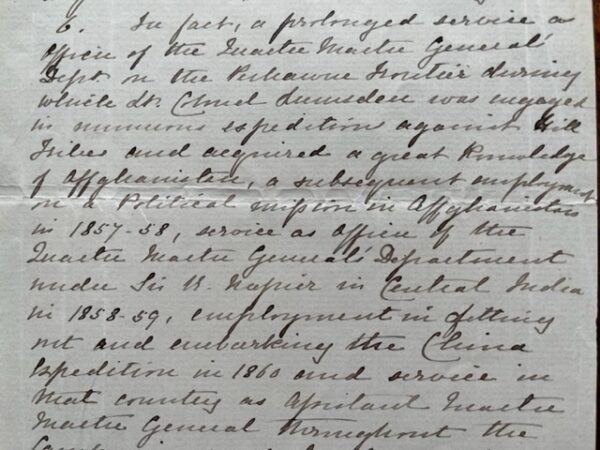 6. In fact, a prolonged service as
Officer of the Quarter Master General's
Dept on the Peshawur Frontier during
which Lt. Colonel Lumsden was engaged
in numerous expeditions against Hill
Tribes and acquired a great knowledge
of Affghanistan, a subsequent employment
on a Political mission in Affghanistan
in 1857-58, service as officer of the
Quarter Master General's Department
under Sir R. Napier in Central India
in 1858-59, employment in fitting
out and embarking the China
Expedition in 1860 and service in
that country as Assistant Quarter
Master General throughout the